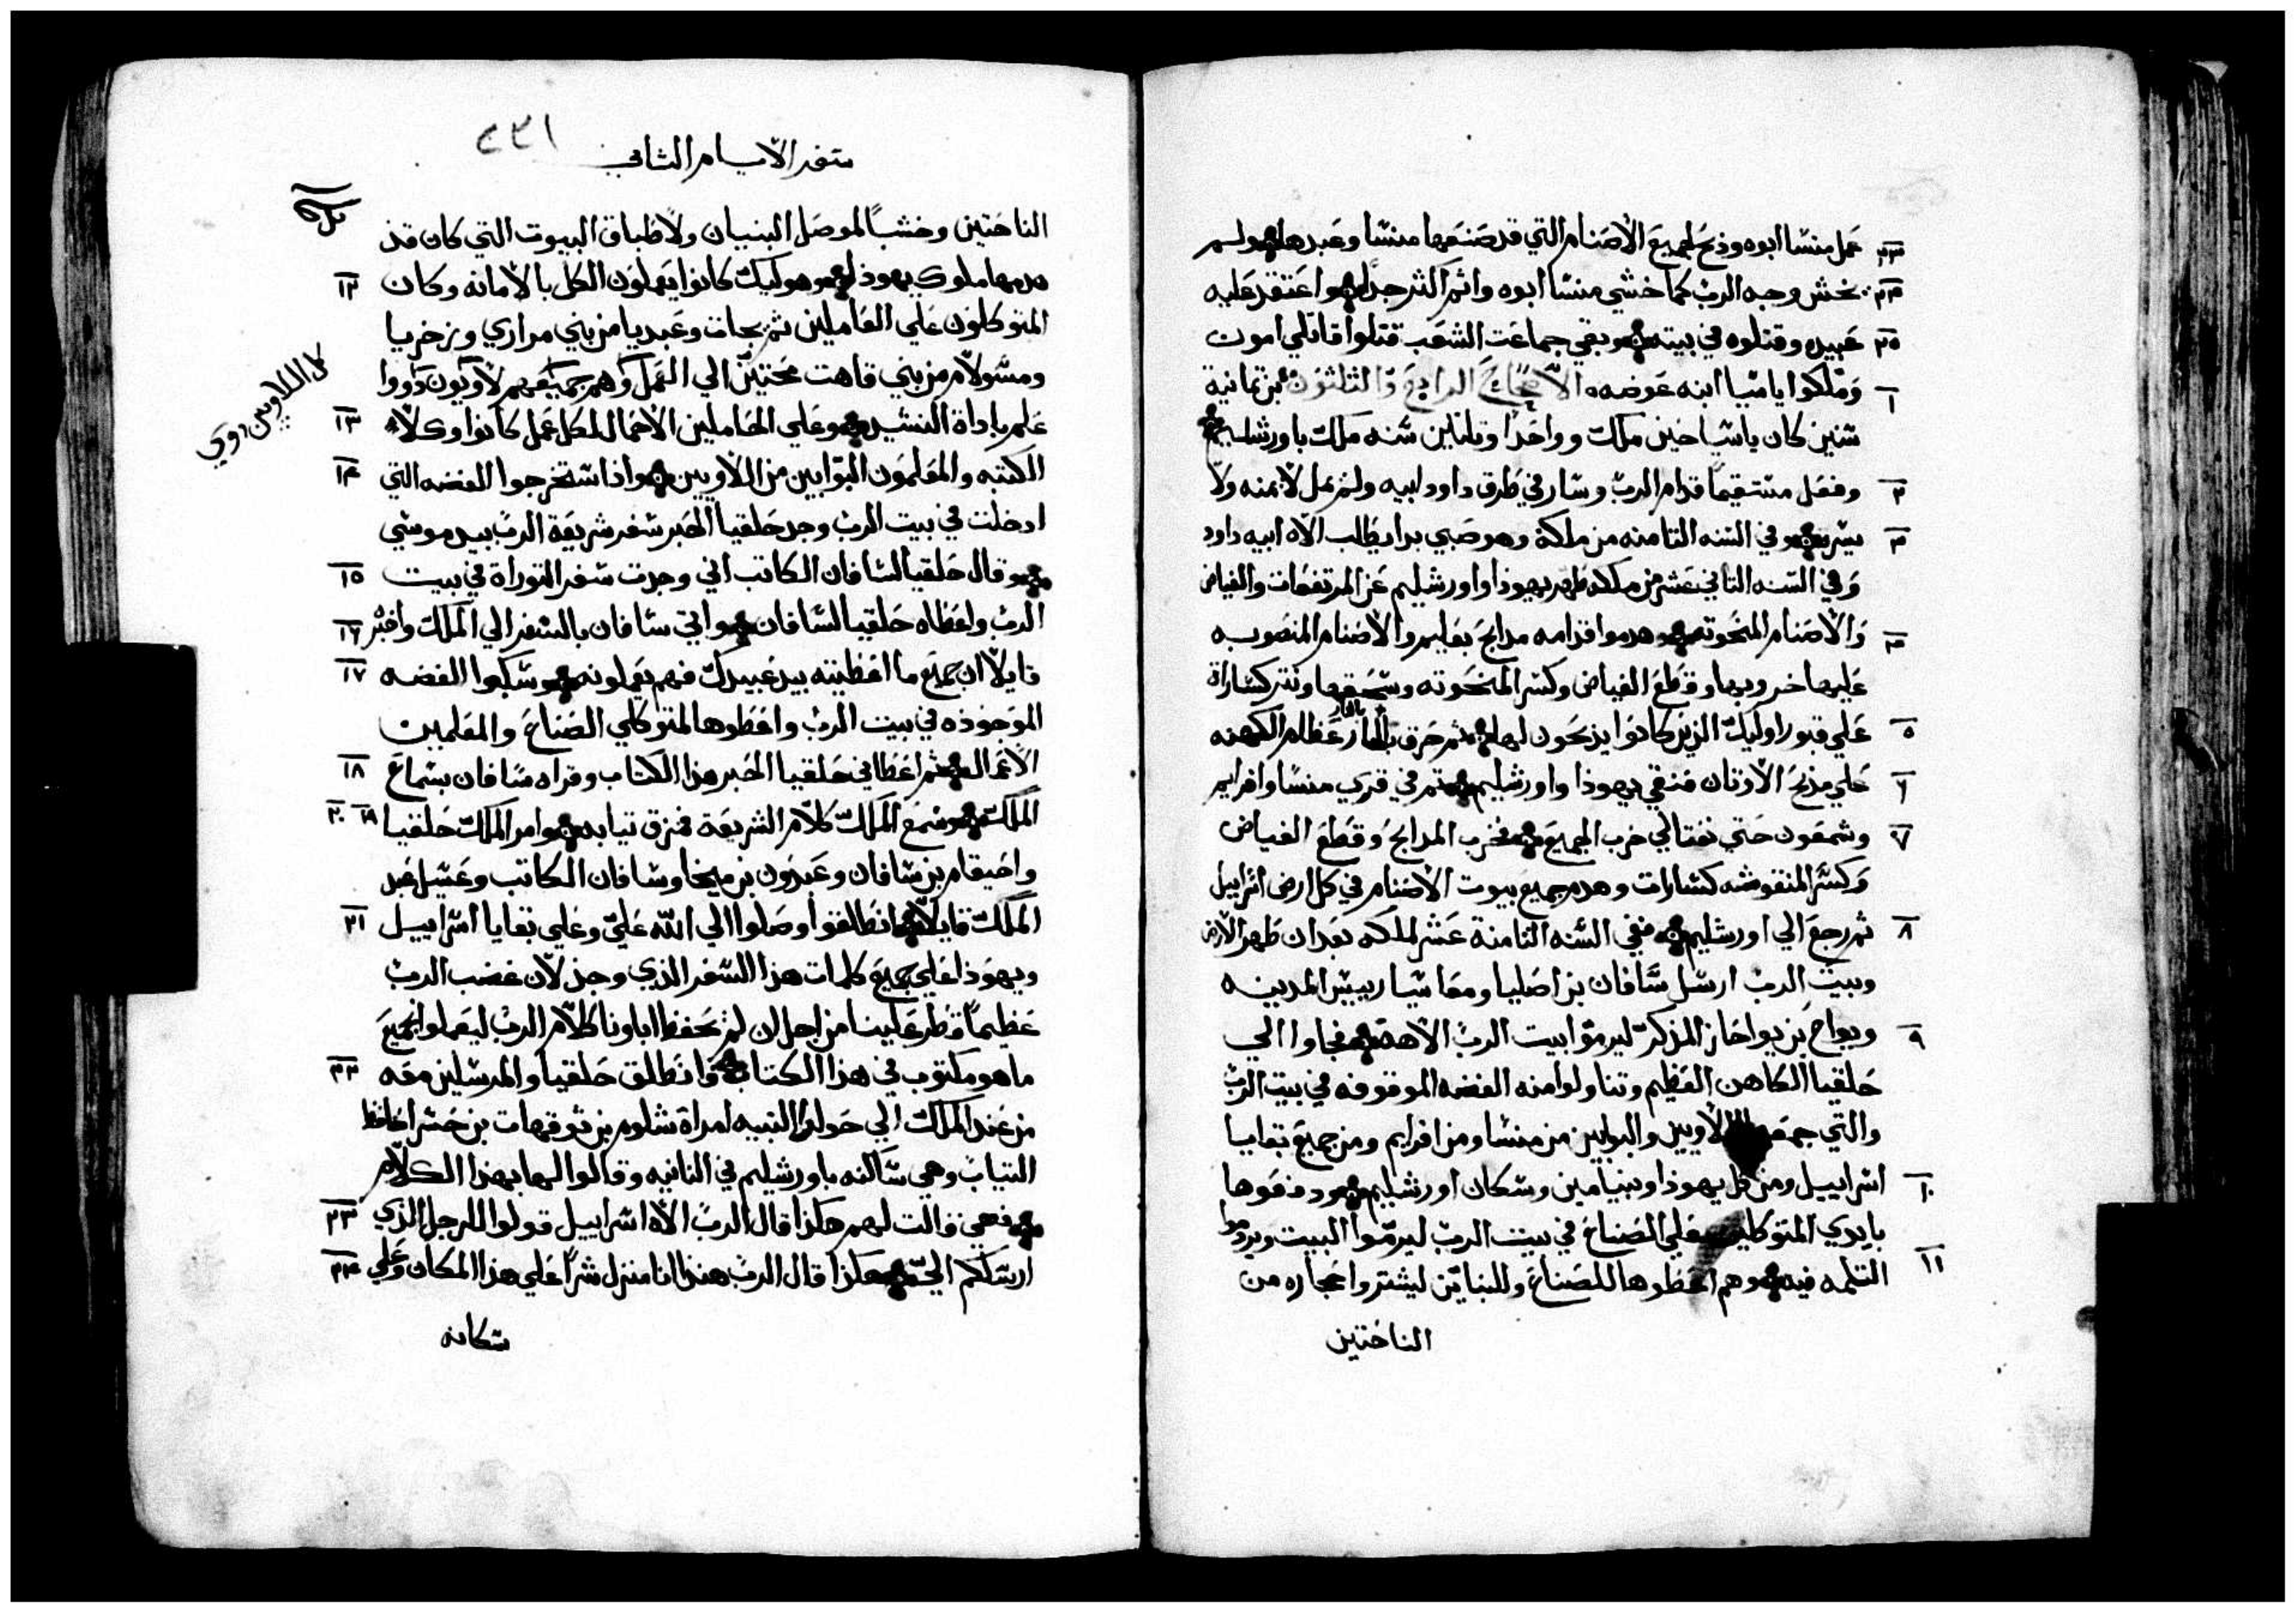 عمل منشا ابوه وذبح لجميع الأصنام التي قد صنعها منشا وعبدها ولم ٢٢
يخش وجه الرب كما خشي منشا ابوه واثم اكثر جدا واعتقد عليه ٢٣
عبيده وقتلوه في بيته وبقي جماعت الشعب قتلوا قاتلي امون ٢٥
وملكوا ياشيا ابنه عوضه الأصحاح الرابع والثلثون بن ثمانية ١
سنين كان ياشيا حين ملك وواحدا وثلثين سنه ملك باورشليم
وفعل مستقيما قدام الرب وسار في طرق داود ابيه ولم يمل لا يمنه ولا ٢
يسره وفي السنه الثامنه من ملكه وهو صبي بدا يطلب الاه ابيه داود ٣
وفي السنه الثاني عشر من ملكه طهر يهوذا واورشليم عن المرتفعات والغياض
والأصنام المنحوته وهدموا قدامه مدابح بعليم والأصنام المنصوبه ٤
عليها خروبها وقطع الغياض وكسر المنحوته وسحقها ونتر كسارة
علي قبور اوليك الذين كانوا يذبحون لها ثم حرق بالنار عظام الكهنه ٥
علي مذبح الأوثان فنقي يهوذا واورشليم ثم في قري منشا وافرايم ٦
وشمعون حتي نفتالي خرب الجميع فخرب المدابح وقطع الغياض ٧
وكسر المنقوشه كسارات وهدم جميع بيوت الأصنام في كل ارض اسراييل
ثم رجع الي اورشليم ففي السنه الثامنة عشر لملكه بعد ان طهر الأرض ٨
وبيت الرب ارسل شافان بن اصليا ومعاشيا رييس المدينه
ويواح بن يواحاز المذكر ليرموا بيت الرب الاهه فجاوا الي ٩
حلقيا الكاهن العظيم وتناولوا منه الفضه الموقوفه في بيت الرب
والتي جمعوا اللاويين والبوابين من منشا ومن افرايم ومن جميع بقايا
اسراييل ومن كل يهوذا وبنيامين وسكان اورشليم ودفعوها ١٠
بايدي المتوكلين علي الصناع في بيت الرب ليرموا البيت ويردموا
الثلمه فيه وهم اعطوها للصناع وللبنايين ليشتروا حجاره من ١١
الناحتين
سفر الأيام الثاني
٢٣١
الناحتين وخشبا لموصل البنيان ولأطباق البيوت التي كان قد
هدمها ملوك يهوذا وهوليك كانوا يعملون الكل بالأمانه وكان ١٢
المتوكلون علي العاملين نثم يحات وعبديا من بني مراري وزخريا
ومشولام من بني قاهت محتين الي العمل وهم جميعهم لاويون داووا
علم باداة النشيد وعلي الحاملين الأحمال لكل عمل كانوا وكلاء ١٣
الكتبه والمعلمون البوابين من اللاويين واذ استخرجوا الفضه التي ١٤
ادخلت في بيت الرب وجد حلقيا الحبر سفر شريعة الرب بيد موسي
وقال حلقيا لشافان الكاتب اني وجدت سفر التوراة في بيت ١٥
الرب واعطاه حلقيا لشافان واتي شافان بالسفر الي الملك واخبره ١٦
قايلا ان جميع ما اعطيته بيد عبيدك فهم يعملونه وسكبوا الفضه ١٧
الموجوده في بيت الرب واعطوها لمتوكلي الصناع والمعلمين
الأعمال ثم اعطاني حلقيا الحبر هذا الكتاب وقراه شافان بسماع ١٨
الملك وسمع الملك كلام الشريعة فمزق ثيابه وامر الملك حلقيا ١٩ ٢٠
واحيقام بن شافان وعبدون بن ميخا وشافان الكاتب وعسيل عبد
الملك قايلا انطلقوا وصلوا الي الله علي وعلي بقايا اسراييل ٢١
ويهوذا علي جميع كلمات هذا السفر الذي وجد لأن غضب الرب
عظيما قطر علينا من اجل ان لم تحفظ اباونا كلام الرب ليعملوا بجميع
ما هو مكتوب في هذا الكتاب وانطلق حلقيا والمرسلين معه ٢٢
من عند الملك الي حولدا النبيه امراة شلوم بن توقهات بن حسر احافظ
الثياب وهي ساكنه باورشليم في الثانيه وقالوا لها بهذا الكلام
فهي قالت لهم هكذا قال الرب الاه اسراييل قولوا للرجل الذي ٢٣
ارسلكم الي هكذا قال الرب هنذا انا منزل شرا علي هذا المكان وعلي ٢٤
سكانه